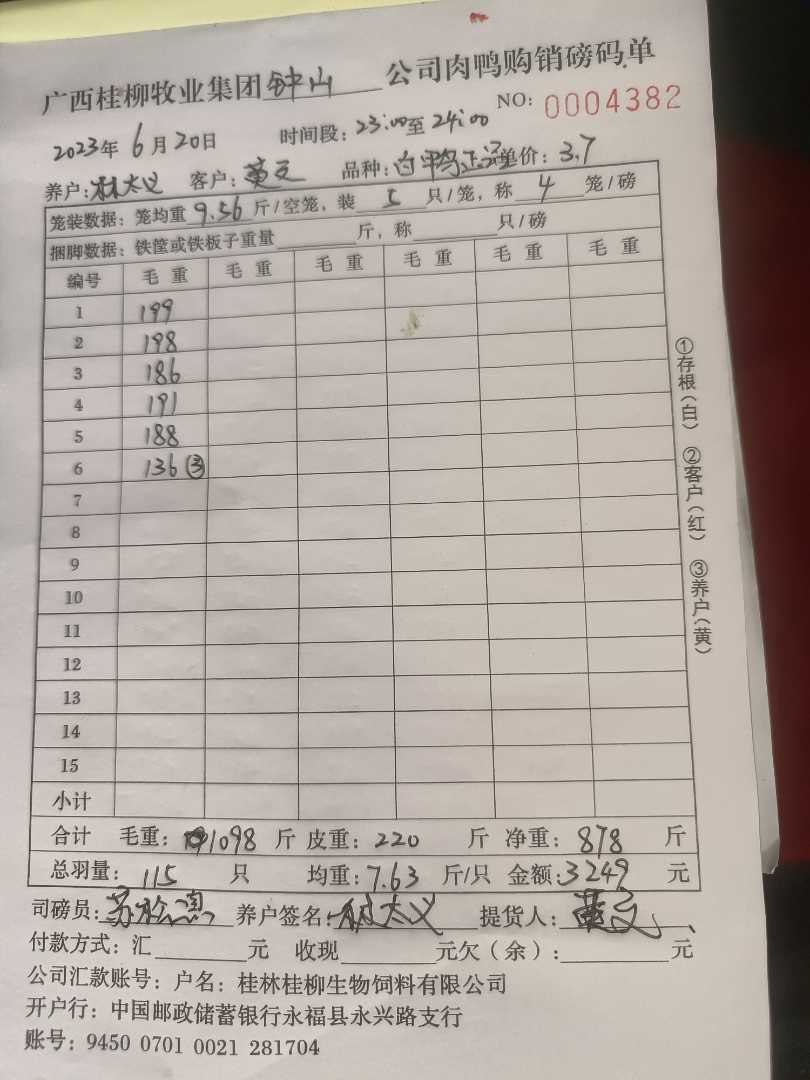 广西桂柳牧业集团钟山公司肉鸭购销磅码单
NO: 0004382
2023年6月20日 时间段: 23:00至24:00
养户: 林太义 客户: 黄文 品种: 白鸭 单价: 3.7
笼装数据: 笼均重9.56斤/空笼, 装5只/笼, 称4笼/磅
捆脚数据: 铁筐或铁板子重量 斤, 称 只/磅
编号 毛重 毛重 毛重 毛重 毛重 毛重
1 199
2 198
3 186
4 191
5 188
6 136 ③
7
8
9
10
11
12
13
14
15
小计
合计 毛重: 1098斤 皮重: 220斤 净重: 878斤
总羽量: 115只 均重: 7.63斤/只 金额: 3249元
司磅员: 苏 养户签名: 林太义 提货人: 黄文
付款方式: 汇 元 收现 元欠(余): 元
公司汇款账号: 户名: 桂林桂柳生物饲料有限公司
开户行: 中国邮政储蓄银行永福县永兴路支行
账号: 9450 0701 0021 281704
①存根(白) ②客户(红) ③养户(黄)